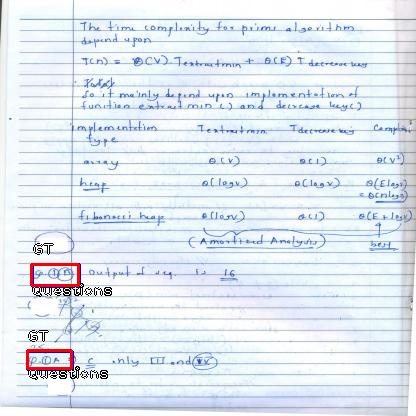 The time complexity for prims algorithm
depend upon
T(n) = θ(V) Textractmin + θ(E) T decrease key
So it mainly depend upon implementation of
function extractmin() and decrease key()
implementation Textractmin Tdecrease key Complexity
type
array θ(V) θ(1) θ(V²)
heap θ(logV) θ(logV) θ(ElogV)
= θ(nlogn)
fibonacci heap θ(logV) θ(1) θ(E + logV)
(Amortized Analysis) best
GT
Output of seq. is 16
Questions
GT
C only III and IV
Questions